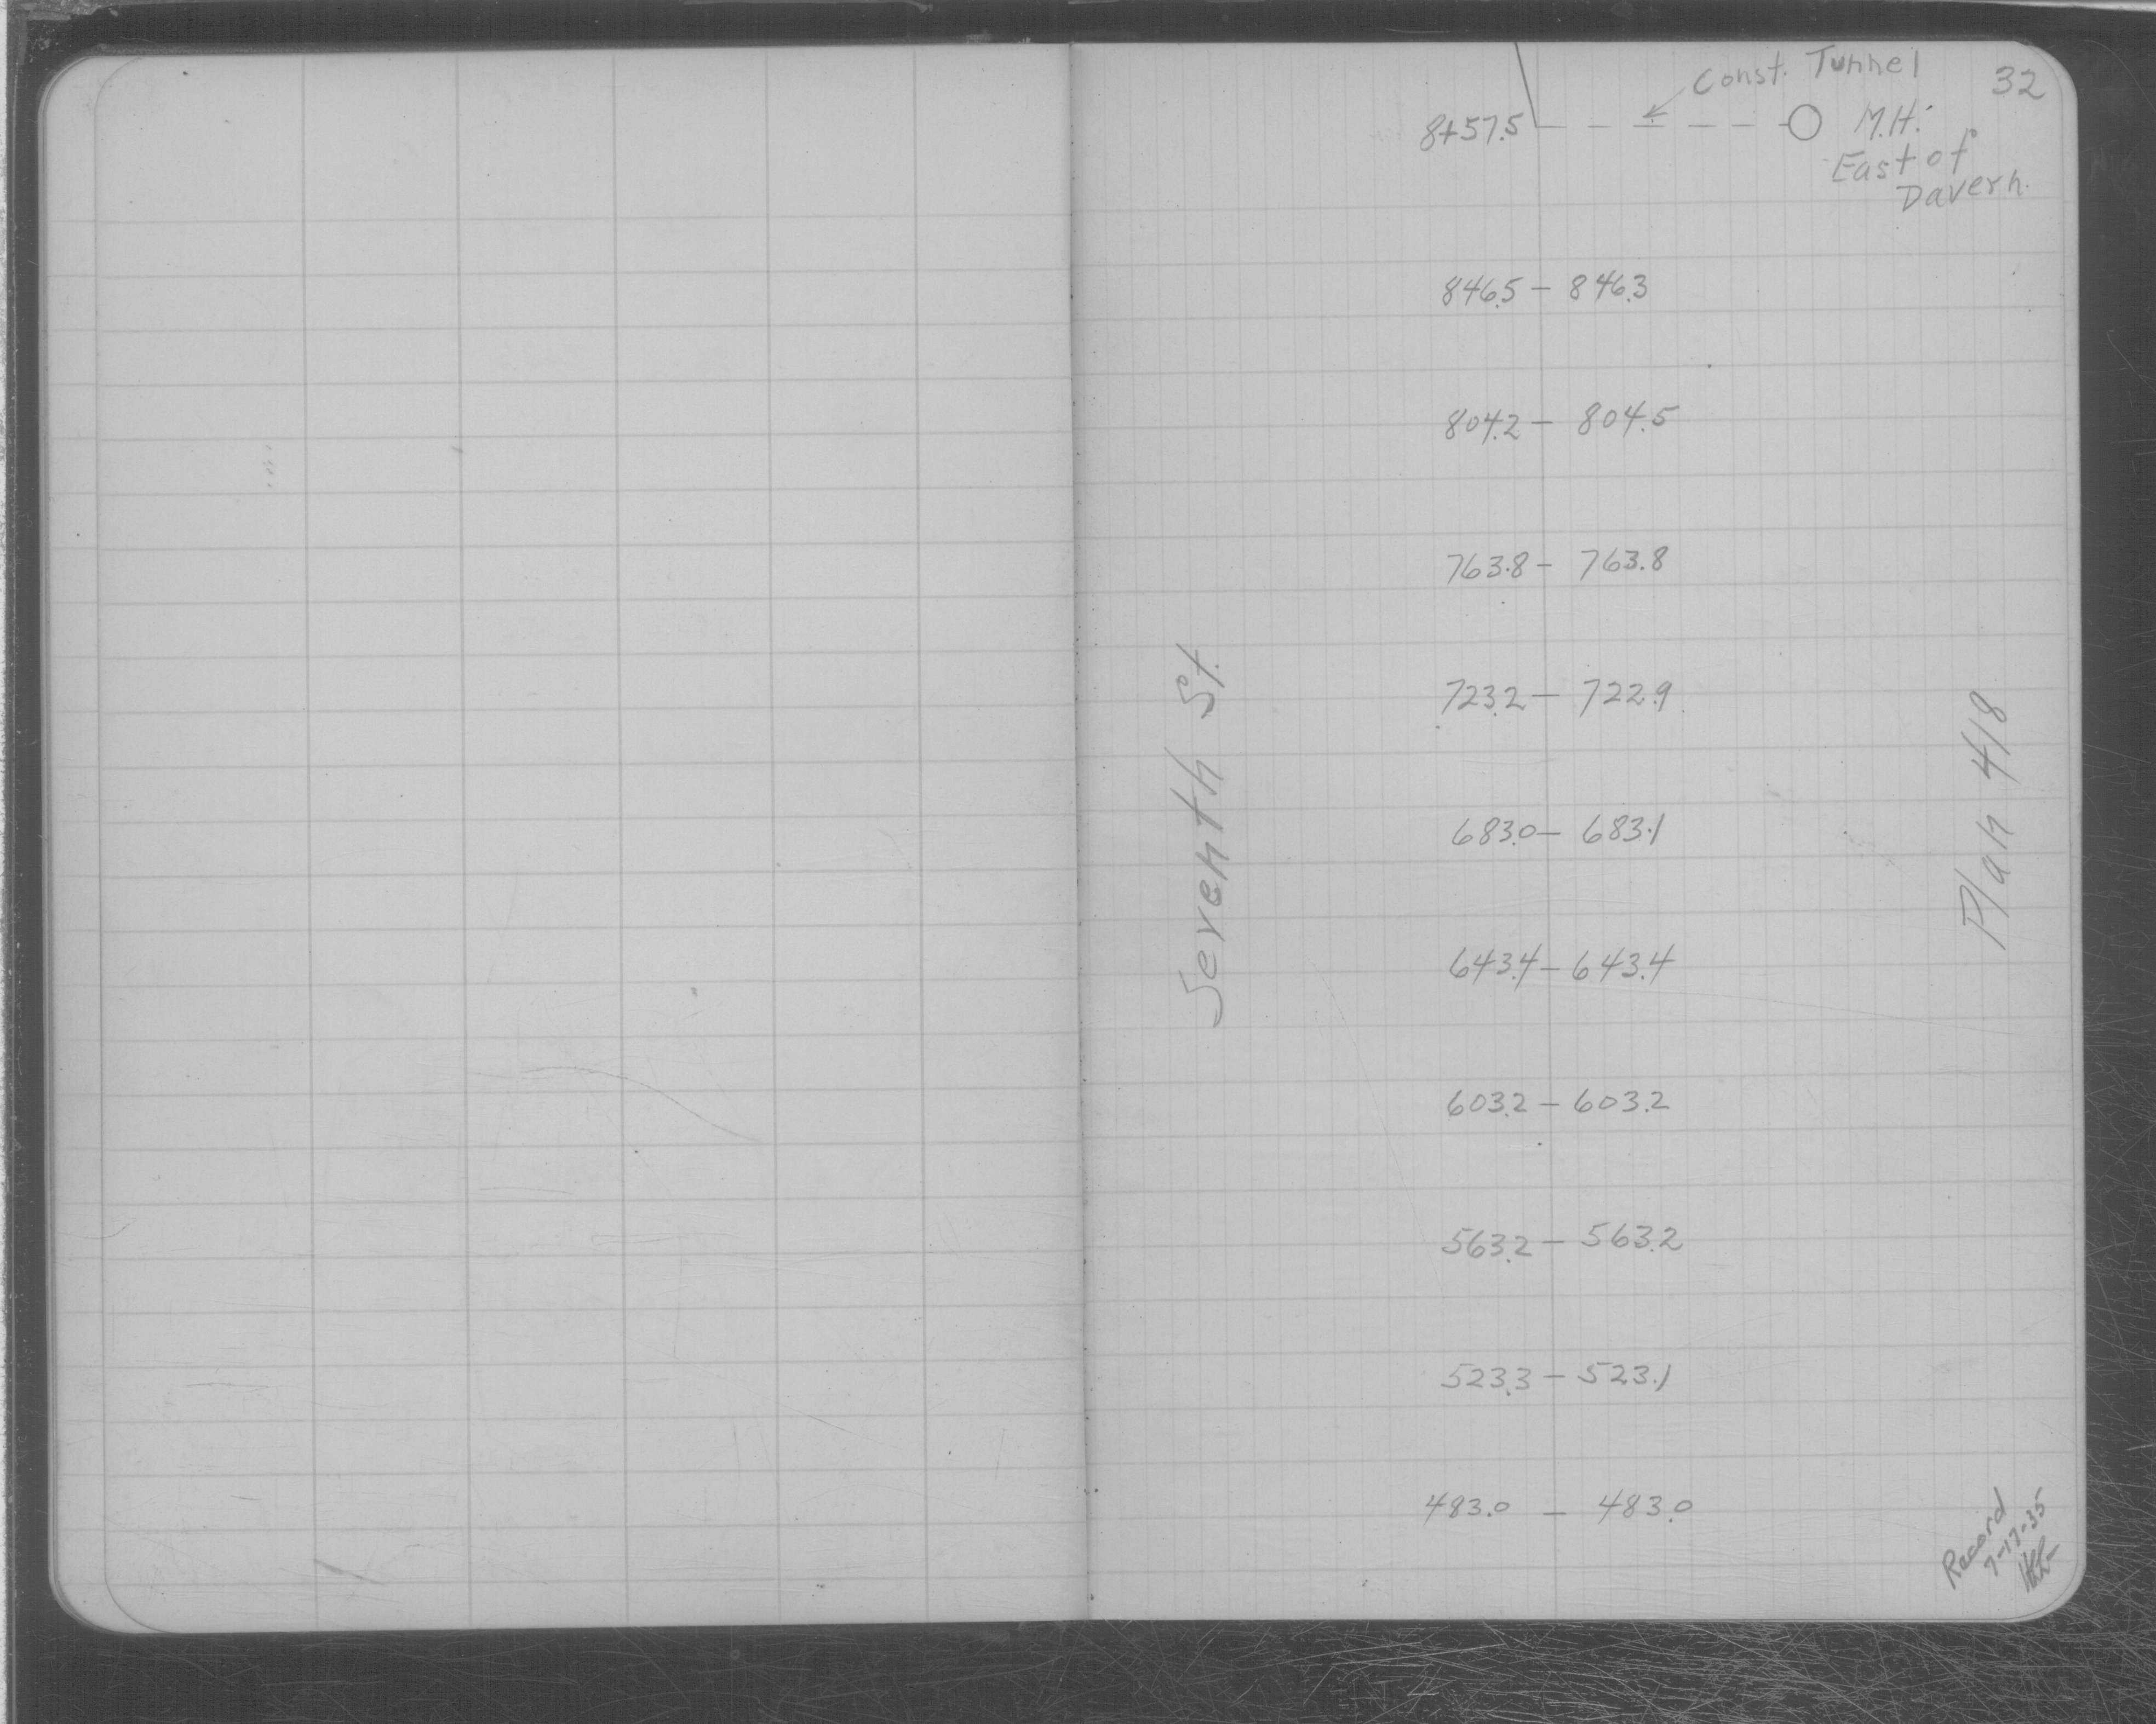 32
Const. Tunnel
8+57.5
M.H.
East of
Davern.
846.5 - 846.3
804.2 - 804.5
763.8 - 763.8
723.2 - 722.9
683.0 - 683.1
643.4 - 643.4
603.2 - 603.2
563.2 - 563.2
523.3 - 523.1
483.0 - 483.0
Seventh St.
Plan 418
Record
7-17-35